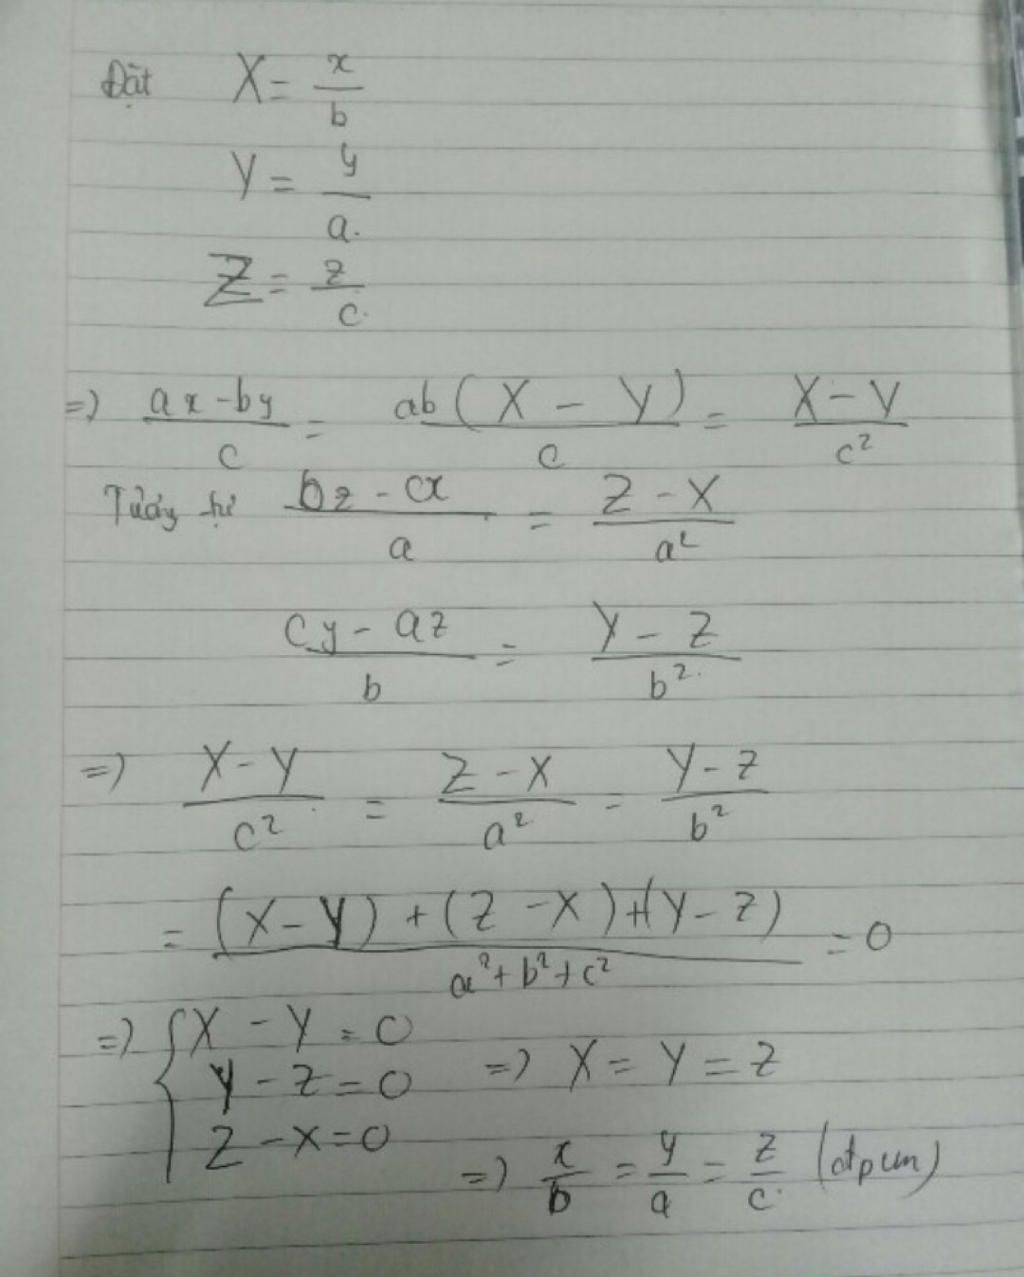 Đặt X = x/b
Y = y/a.
Z = z/c.
=) (ax - by)/c = ab(X - Y)/c = (X - Y)/c²
Tương tự (bz - cx)/a = (Z - X)/a²
(cy - az)/b = (Y - Z)/b².
=) (X - Y)/c² = (Z - X)/a² = (Y - Z)/b²
= ((X - Y) + (Z - X) + (Y - Z))/(a² + b² + c²) = 0
=) { X - Y = 0
Y - Z = 0 =) X = Y = Z
Z - X = 0
=) x/b = y/a = z/c. (đpcm)